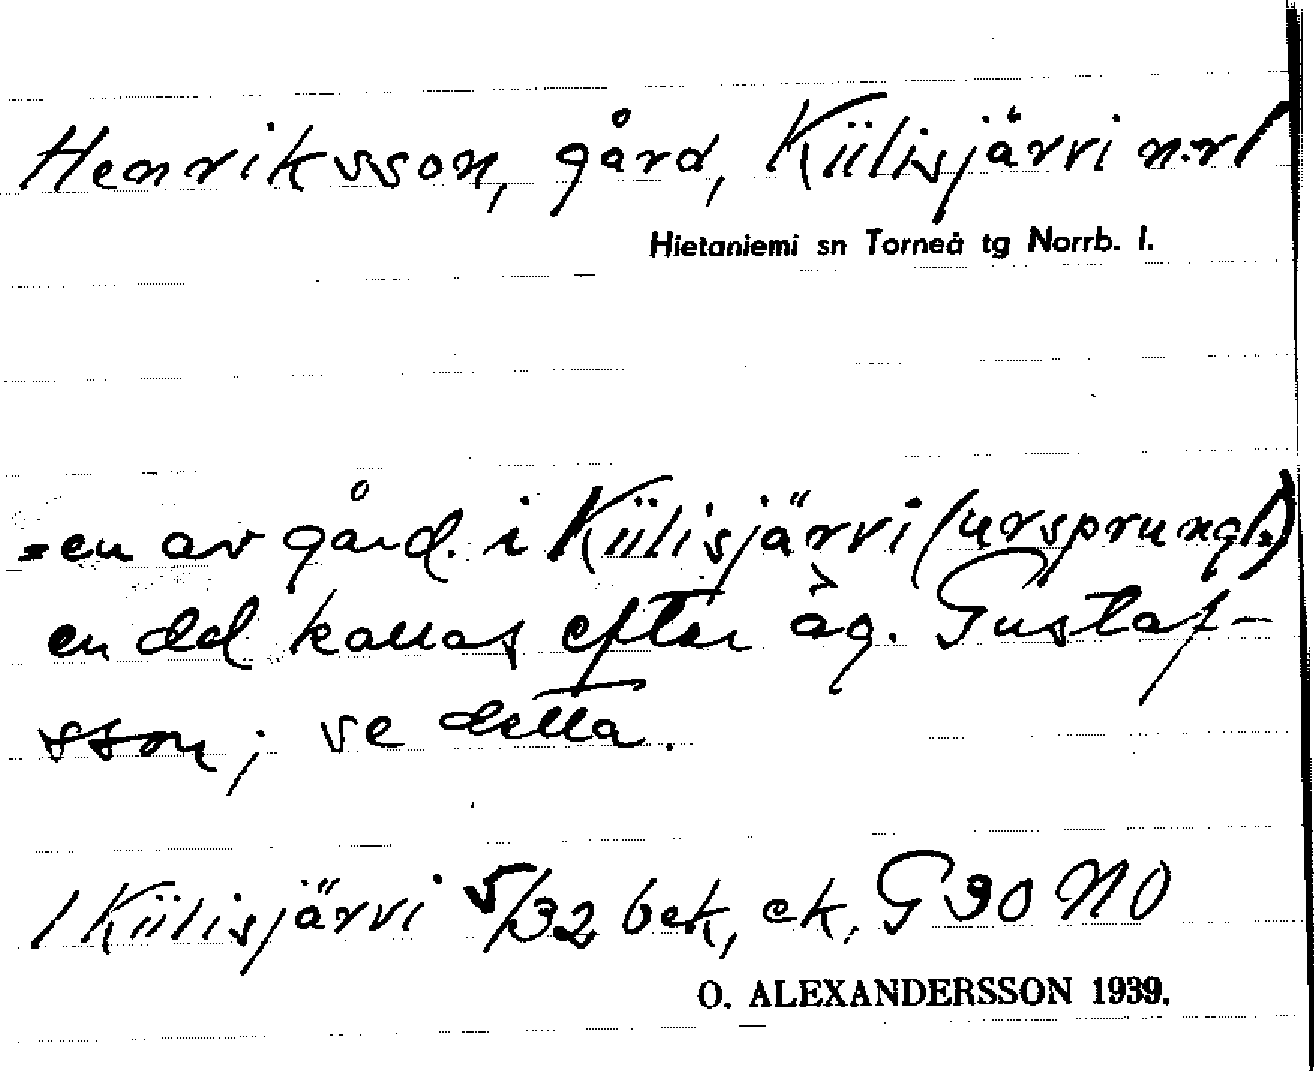 Henriksson, gård, Kiilisjärvi n:r 1
Hietaniemi sn Torneå tg Norrb. l.
= en av gård. i Kiilisjärvi (ursprungl.)
en del kallas efter äg. Gustaf-
sson; se detta.
1 Kiilisjärvi 5/32 bek, ek. G 90 NO
O. ALEXANDERSSON 1939.